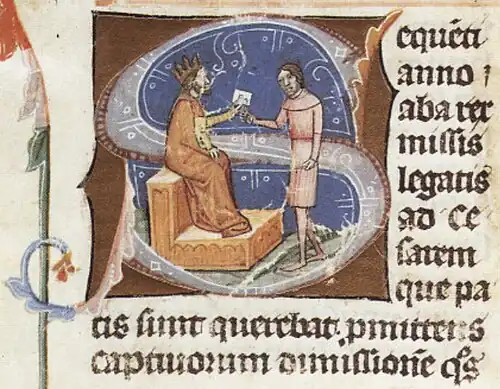 equēti
anno
aba rex
missis
legatis
ad ce
sarem
que pa
cis sunt querebat. pmittens
captiuorum dimissionē q̄s